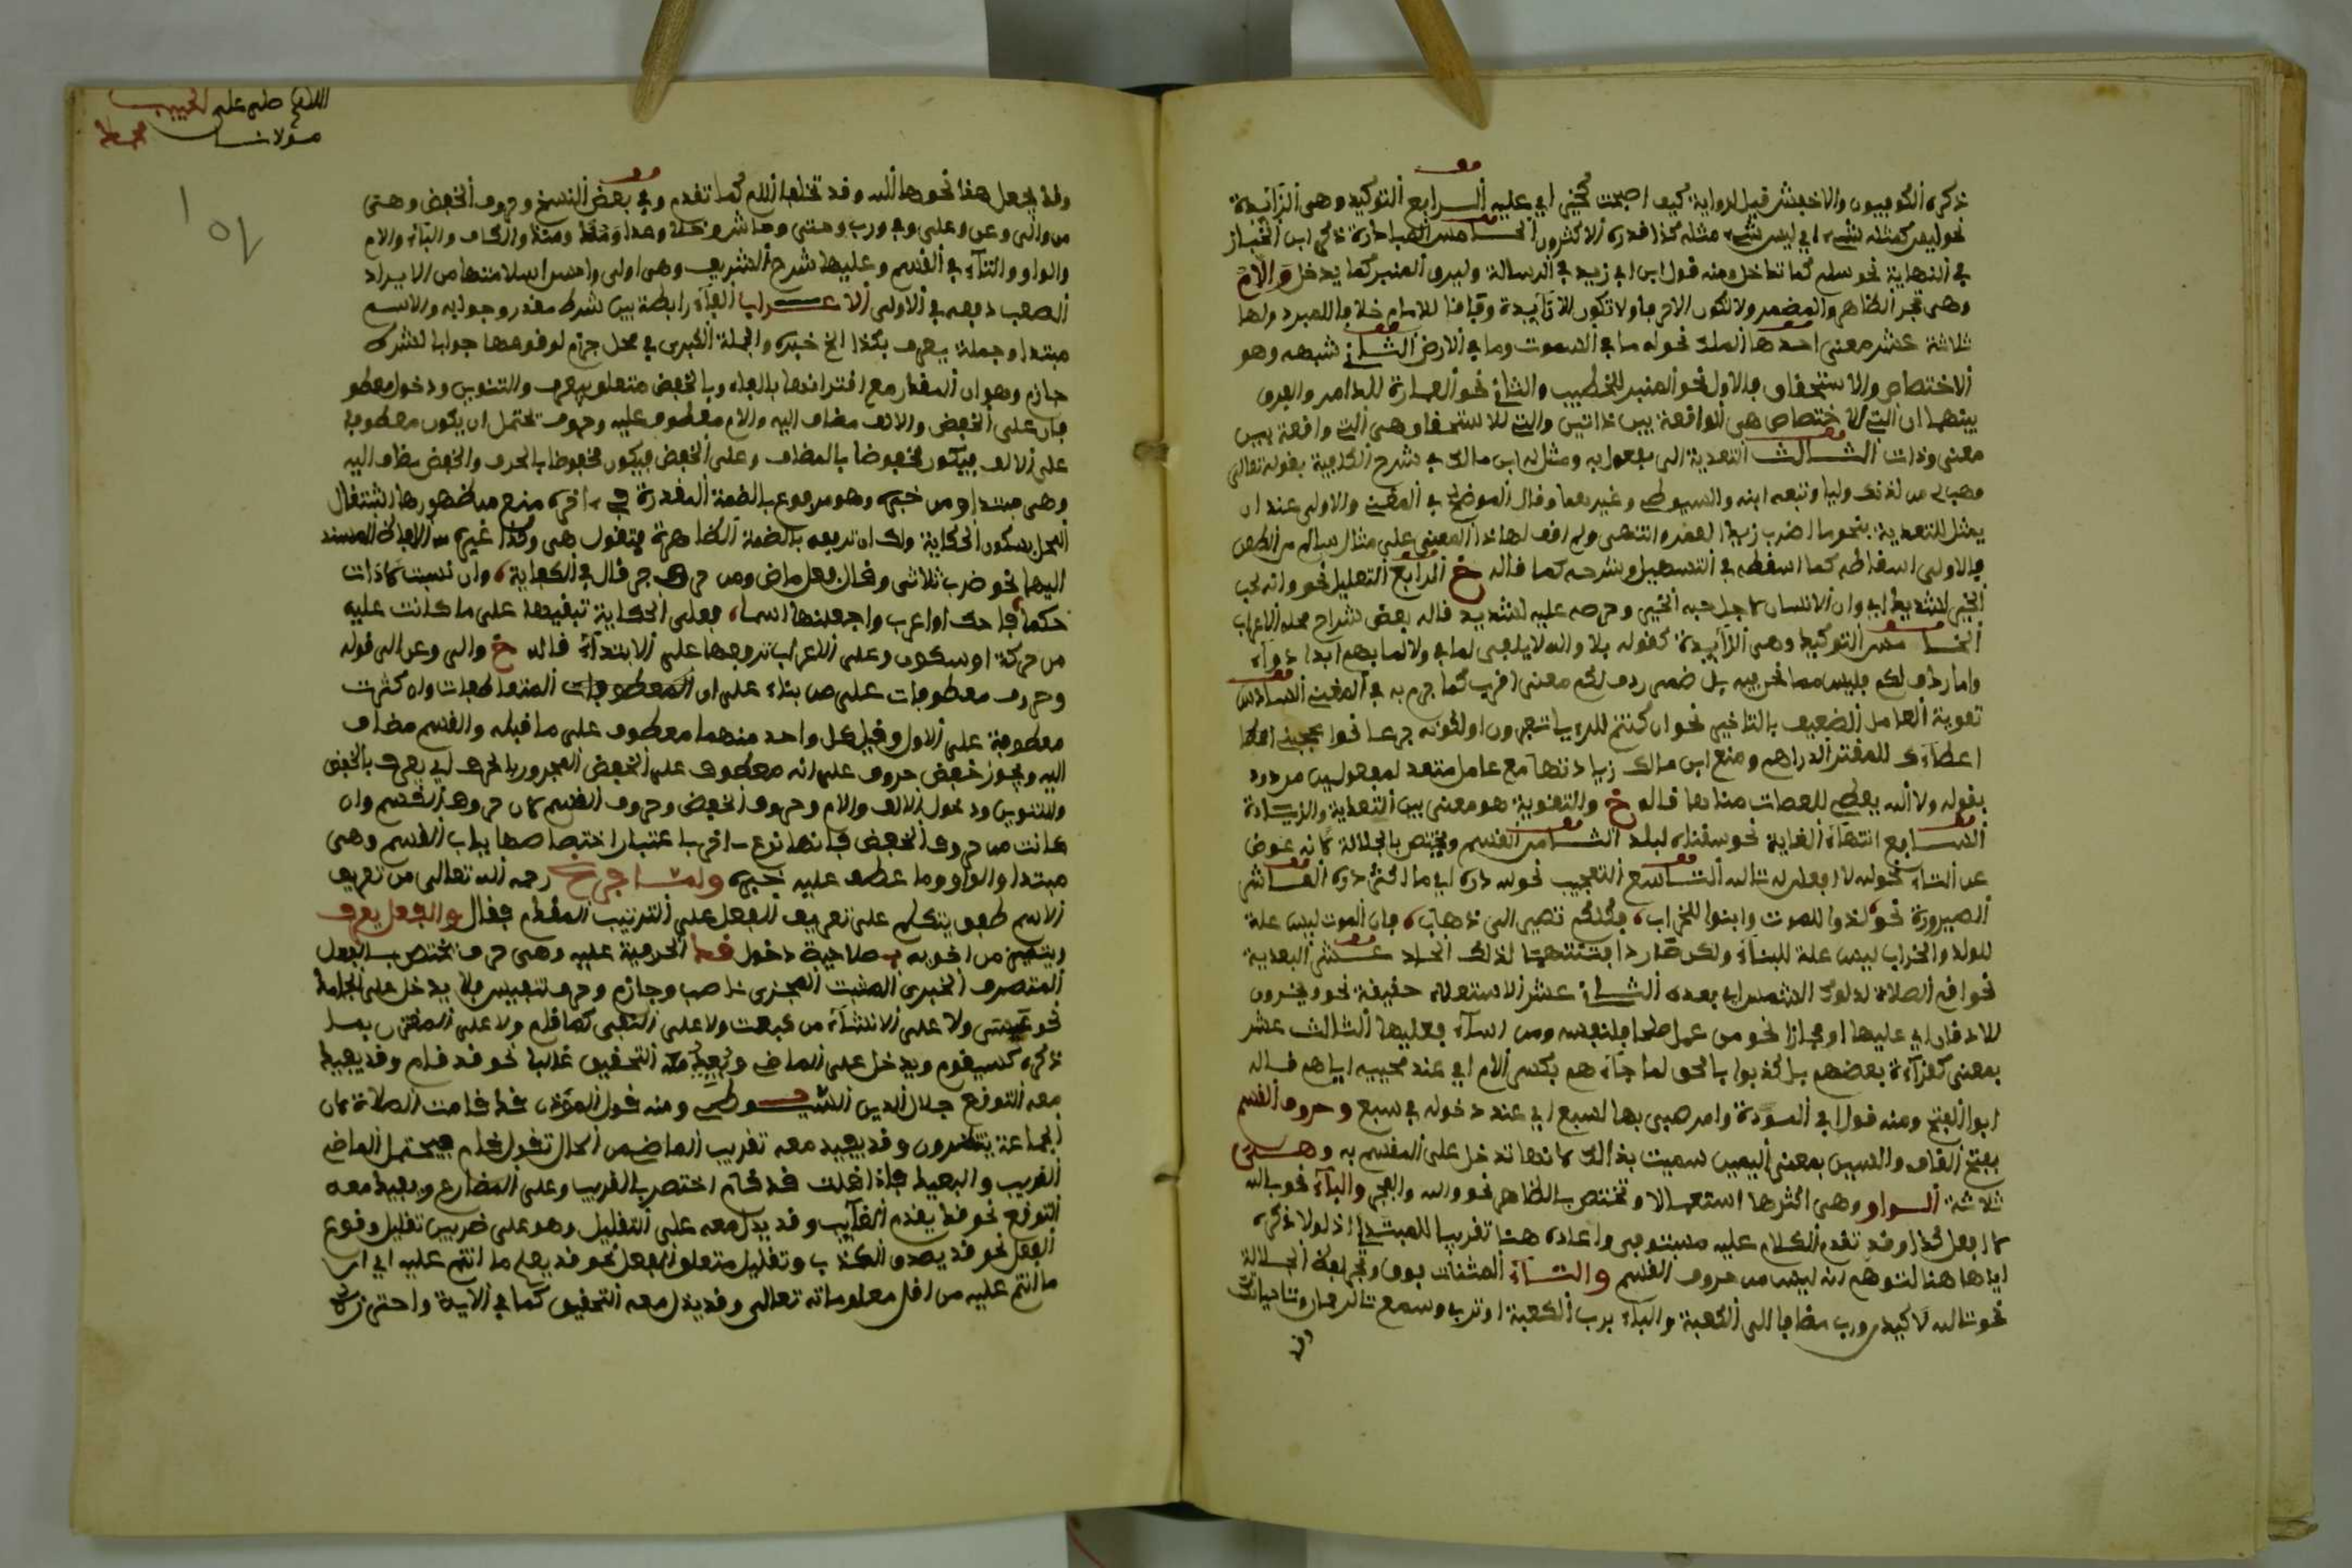 ذكره الكوفيون والاخفش قيل لرواية كيف اصبحت كخير اي عليه الرابع التوكيد وهي الزائدة
نحو ليس كمثله شيء اي ليس شيء مثله كذا قدره الاكثرون الخامس المبادرة ذكره ابن الخباز
في النهاية نحو سلم كما تدخل ومنه قول ابن ابي زيد في الرسالة وليرق المنبر كما يدخل واللام
وهي تجر الظاهر والمضمر ولا تكون الا حرفا ولا تكون الا زائدة وفاقا للامام خلافا للمبرد ولها
ثلاثة عشر معنى احدها الملك نحو له ما في السموت وما في الارض الثاني شبهه وهو
الاختصاص والاستحقاق فالاول نحو المنبر للخطيب والثاني نحو العمارة للدار والفرق
بينهما ان التي للاختصاص هي الواقعة بين ذاتين والتي للاستحقاق هي التي واقعة بين
معنى وذات الثالث التعدية الى مفعول به ومثل له ابن مالك في شرح الكافية بقوله تعالى
فهب لي من لدنك وليا وتبعه ابنه والسيوطي وغيرهما وقال الموضح في المغني والاولى عندي ان
يمثل للتعدية بنحو ما اضرب زيدا لعمرو انتهى ولم اقف لهاذا المعنى على مثال سالم من الطعن
فالاولى اسقاطه كما اسقطه في التسهيل وشرحه كما قاله خ الرابع التعليل نحو وانه لحب
الخير لشديد اي وان الانسان لاجل حبه الخير وحرصه عليه لشديد قاله بعض شراح محله الاعراب
الخامس التوكيد وهي الزائدة كقوله فلا والله لا يلفى لما بي ولا للما بهم ابدا دواء
واما ردف لكم فليس مما نحن فيه بل ضمن ردف لكم معنى اقرب كما جزم به في المغني السادس
تقوية العامل الضعيف بالتاخير نحو ان كنتم للرءيا تعبرون او لكونه فرعا نحو اعجبني
اعطاءك للمفتر الدراهم ومنع ابن مالك زيادتها مع عامل متعد لمفعولين مردود
بقوله ولا الله يعطي للعصات مناها قاله خ والتقوية هو معنى بين التعدية والزيادة
السابع انتهاء الغاية نحو سقناه لبلد الثامن القسم ويختص بالجلالة لانه عوض
عن التاء كقوله لا افعل له تالله التاسع التعجيب نحو لله دره اي ما اكثر دره العاشر
الصيرورة نحو لدوا للموت وابنوا للخراب فكلكم تصير الى ذهاب فان الموت ليس علة
للولد والخراب ليس علة للبناء ولكن صار دافتنتهما لذلك الحادي عشر البعدية
نحو اقم الصلاة لدلوك الشمس اي بعده الثاني عشر الاستعلاء حقيقة نحو ويخرون
للاذقان اي عليها او مجازا نحو من عمل صلحا فلنفسه ومن اساء فعليها الثالث عشر
بمعنى كقراءة بعضهم بل كذبوا بالحق لما جاءهم بكسر اللام اي عند مجيئه اياهم قاله
ابو الفتح ومنه قول ابي السودة وامر صبي بها لسبع اي عند دخوله في سبع وحروف القسم
بفتح القاف والسين بمعنى اليمين سميت بذالك لانها تدخل على المقسم به وهي
ثلاثة الواو وهي اكثرها استعمالا وتختص بالظاهر نحو والله والفجر والباء نحو بالله
لا افعل كذا وقد تقدم الكلام عليه مستوفى واعاده هنا تقريبا للمبتدي اذ لولا ذكره
اياها هنا لتوهم انه ليس من حروف القسم والتاء المثناة فوق وتجر لفظ الجلالة
نحو تالله لاكيدن ورب مضافا الى الكعبة والياء برب الكعبة او تربي وسمع تالرحمان وتحياتك
وقد
اللهم صل على الحبيب
مولانا محمد
ولذا يجعل هذا نحوها الله وقد تخلفها اللام كما تقدم وفي بعض النسخ وحروف الخفض وهي
من والى وعن وعلى وفي ورب وحتى وحاشى وخلا وعدا ومذ ومنذ والكاف والباء واللام
والواو والتاء في القسم وعليها شرح الشريف وهي اولى واحسن لسلامتها من الايراد
الصعب دفعه في الاولى الاعراب الفاء رابطة بين شرط مقدر وجوابه والاسم
مبتدا وجملة يعرف بكذا الخ خبره والجملة الكبرى في محل جزم لوقوعها جوابا لشرط
جازم وهو ان المقدر مع اقترانها بالفاء وبالخفض متعلق بيعرف والتنوين ودخول معطو
فان على الخفض والالف مضاف اليه واللام معطوف عليه وحروف يحتمل ان يكون معطوفا
على الالف فيكون مخفوضا بالمضاف وعلى الخفض فيكون مخفوضا بالحرف والخفض مضاف اليه
وهي مبتدا ومن خبره وهو مرفوع بالضمة المقدرة في ءاخره منع من ظهورها اشتغال
المحل بسكون الحكاية ولك ان ترفعه بالضمة الظاهرة فتقول هي وكذا غيره من الالفاظ المسند
اليها نحو ضرب ثلاثي وقال فعل ماض ومن حرف جر قال في الكفاية وان نسبت لاداة
حكما فاحك او اعرب واجعلنها اسما فعلى الحكاية تبقيها على ما كانت عليه
من حركة او سكون وعلى الاعراب ترفعها على الابتداء قاله خ والى وعن الى قوله
وحروف معطوفات على من بناء على ان المعطوفات المتعاطفات وان كثرت
معطوفة على الاول وقيل كل واحد منهما معطوف على ما قبله والقسم مضاف
اليه ويجوز خفض حروف على انه معطوف على الخفض المجرور بالحرف اي يعرف بالخفض
والتنوين ودخول الالف واللام وحروف الخفض وحروف القسم لان حروف القسم وان
كانت من حروف الخفض فانها نوع ءاخر باعتبار اختصاصها بباب القسم وهي
مبتدا والواو وما عطف عليه خبره ولما فرغ رحمه الله تعالى من تعريف
الاسم طفق يتكلم على تعريف الفعل على الترتيب المقدم فقال والفعل يعرف
ويتميز من اخويه بصلاحية دخول قد الحرفية عليه وهي حرف تختص بالفعل
المتصرف الخبري المثبت المجرد من ناصب وجازم وحرف تنفيس فلا يدخل على الجامد
نحو عسى ولا على الانشاء من كبعت ولا على النفي كما قام ولا على المقترن بما
ذكره كسيقوم ويدخل على الماضي ويفيد معه التحقيق غالبا نحو قد قام وقد يفيد
معه التوقع جلال الدين السيوطي ومنه قول المؤذن قد قامت الصلاة لان
الجماعة ينتظرون وقد يفيد معه تقريب الماضي من الحال تقول قام فيحتمل الماضي
القريب والبعيد فاذا قلت قد قام اختص بالقريب وعلى المضارع ويفيد معه
التوقع نحو قد يقدم الغايب وقد يدل معه على التقليل وهو على ضربين تقليل وقوع
الفعل نحو قد يصدق الكذب وتقليل متعلق الفعل نحو قد يعلم ما انتم عليه اي ان
ما انتم عليه من اقل معلوماته تعالى وقد يدل معه التحقيق كما في الاية واحترز